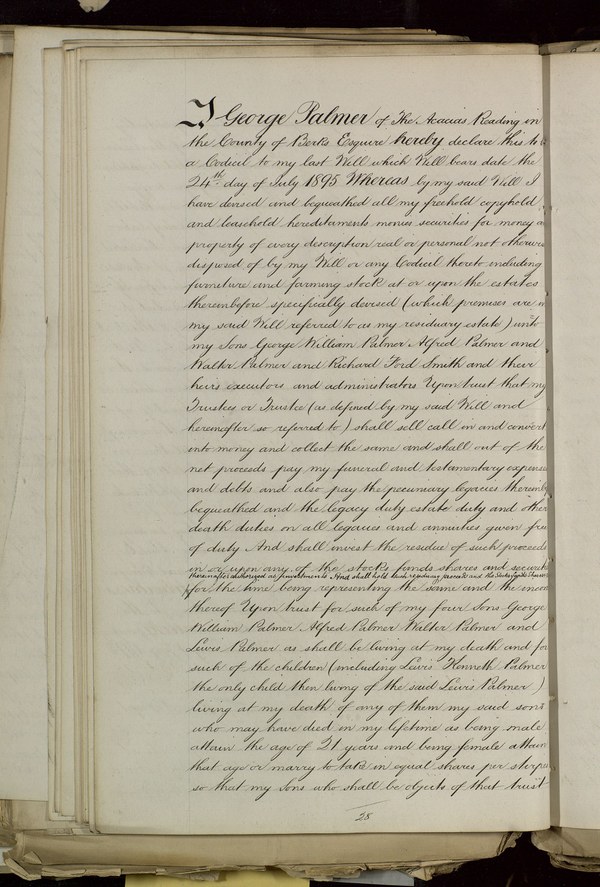 I George Palmer of The Acacias Reading in
the County of Berks Esquire hereby declare this to b
a Codicil to my last Will which Will bears date the
24th day of July 1895 Whereas by my said Will I
have devised and bequeathed all my freehold copyhold
and leasehold hereditaments monies securities for money a
property of every description real or personal not otherwis
disposed of by my Will or any Codicil thereto including
furniture and farming stock at or upon the estates
thereinbefore specifically devised (which premises are in
my said Will referred to as my residuary estate) unto
my Sons George William Palmer Alfred Palmer and
Walter Palmer and Richard Ford Smith and their
heirs executors and administrators Upon trust that my
Trustees or Trustee (as defined by my said Will and
hereinafter so referred to) shall sell call in and convert
into money and collect the same and shall out of the
net proceeds pay my funeral and testamentary expenses
and debts and also pay the pecuniary legacies thereinb
bequeathed and the legacy duty estate duty and other
death duties on all legacies and annuities given free
of duty And shall invest the residue of such proceeds
in or upon any of the stocks funds shares and securiti
thereinafter authorized as investments And shall hold such residuary proceeds and the stocks funds shares
for the time being representing the same and the incom
thereof Upon trust for such of my four Sons George
William Palmer Alfred Palmer Walter Palmer and
Lewis Palmer as shall be living at my death and for
such of the children (including Lewis Kenneth Palmer
the only child then living of the said Lewis Palmer)
living at my death of any of them my said sons
who may have died in my lifetime as being male
attain the age of 21 years and being female attain
that age or marry to take in equal shares per stirpes
so that my Sons who shall be objects of that trust
28